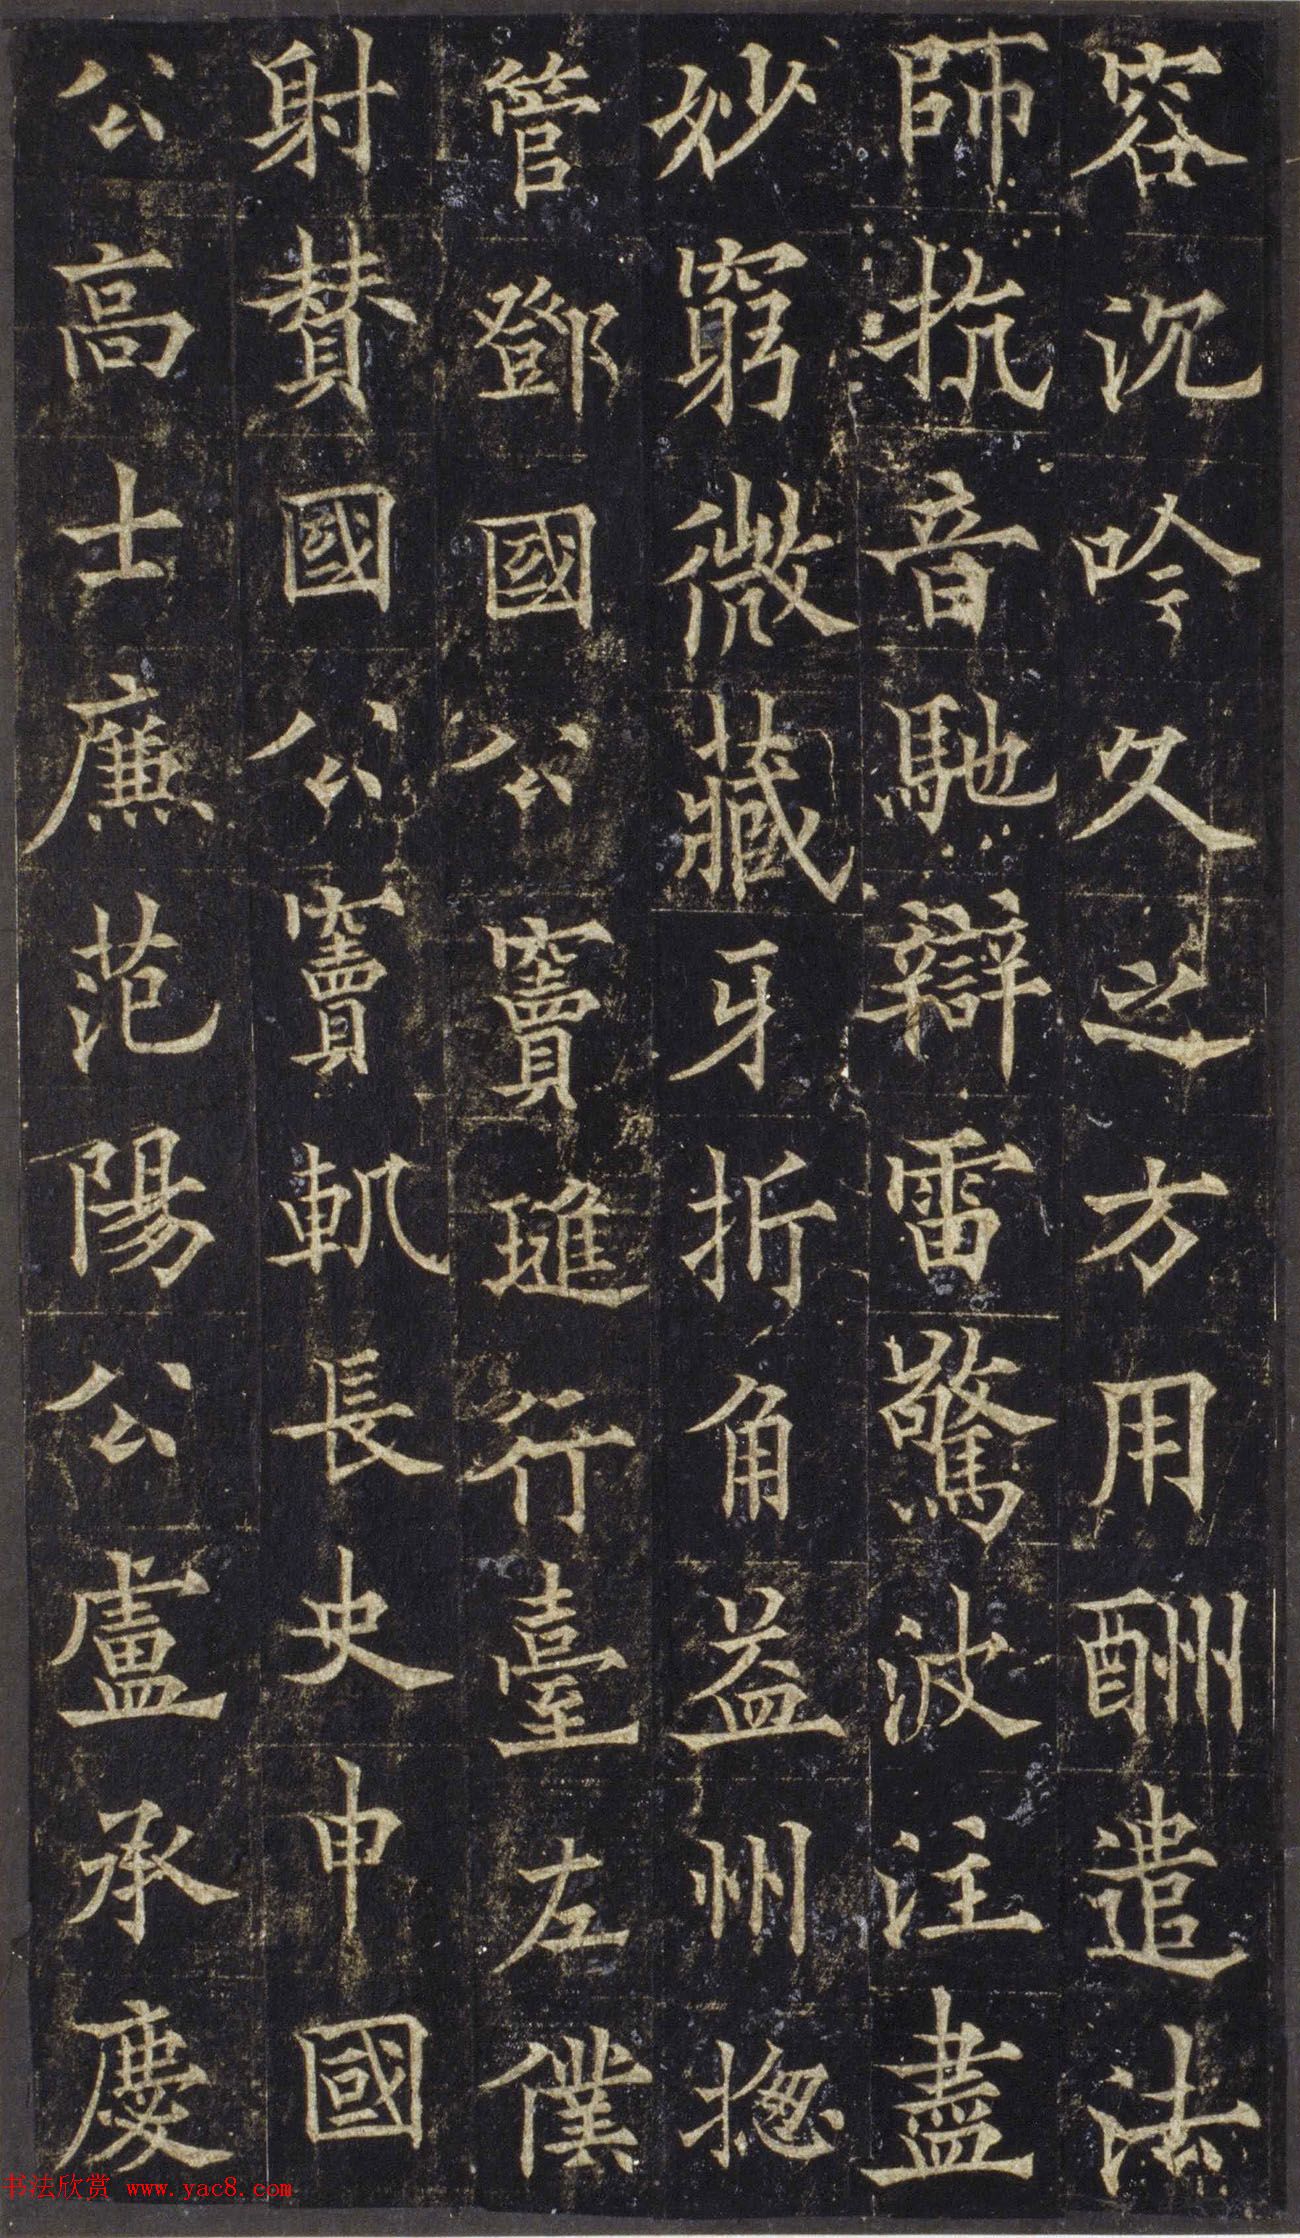 容沉吟久之方用酬遣法
師抗音馳辯雷驚波注盡
妙窮微藏牙折角益州揔
管鄧國公竇璡行臺左僕
射贊國公竇軌長史申國
公高士廉范陽公盧承慶
书法欣赏 www.yac8.com